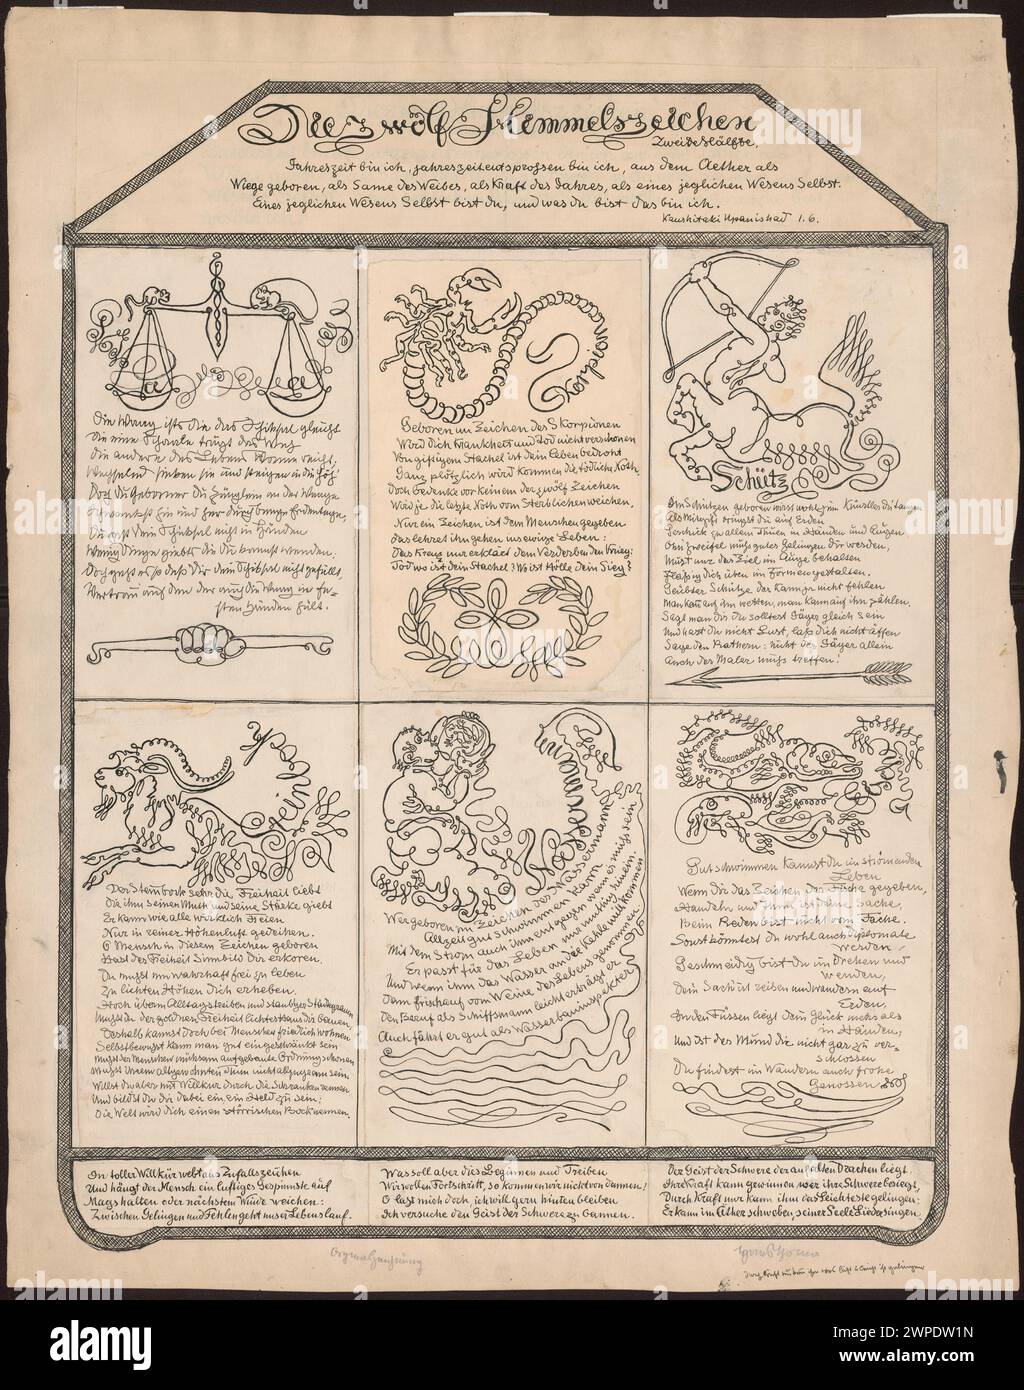 Die zwölf Himmelszeichen
Zweite Hälfte.
Jahreszeit bin ich, jahreszeitentsprossen bin ich, aus dem Aether als
Wiege geboren, als Same des Weibes, als Kraft des Jahres, als eines jeglichen Wesens Selbst.
Eines jeglichen Wesens Selbst bist du, und was du bist das bin ich.
Kaushitaki Upanishad 1.6.
Die Waag ists die das Schicksal gleicht
die eine Schaale trägt das
die andere des Lebens Wonne reicht,
Wechselnd sinken sie und steigen in die Höh!
Dort die Geborner du Zünglein an der Waage
Schwankst hin und her durch bange Erdentage,
Du hast dein Schicksal nicht in Händen
Wenig Dinge giebts die du kannst wenden.
Doch gehts so daß dir dein Schicksal nicht gefällt,
Vertrau auf den der auch die Waag in fe-
sten Händen hält.
Skorpion
Geboren im Zeichen des Skorpionen
Wird dich Krankheit und Tod nicht verschonen
Von giftigem Stachel ist dein Leben bedroht
Ganz plötzlich wird kommen die tödliche Noth.
Doch bedenke vor keinem der zwölf Zeichen
Wird je die letzte Noth vom Sterblichen weichen.
Nur ein Zeichen ist dem Menschen gegeben
das lehret ihn gehen ins ewige Leben:
Das Kreuz nur erklärt dem Verderben den Krieg:
Tod wo ist dein Stachel? Wo ist Hölle dein Sieg?
Schütz
Im Schützen geboren wirst wohl ein Künstler du taugen
Als Mitgift bringst du auf Erden
Geschick zu allem Thuen in Händen und Augen
Ohn Zweifel muß gutes Gelingen dir werden,
Must nur das Ziel im Auge behalten
Fleißig dich üben im Formengestalten.
Geübter Schütze der kann ja nicht fehlen
Man kann auf ihn wetten, man kann auf ihn zählen.
Sagt man dir du solltest Jäger gleich sein
Und hast du nicht Lust, laß dich nicht äffen
Sage den Rathern: nicht der Jäger allein
Auch der Maler muß treffen!
Steinbock
Der Steinbock sehr die Freiheit liebt
Die ihm seinen Muth und seine Stärke giebt
Er kann wie alle wirklich Freien
Nur in reiner Höhenluft gedeihen.
O Mensch in diesem Zeichen geboren
Hast der Freiheit Sinnbild dir erkoren.
Du mußt um wahrhaft frei zu leben
Zu lichten Höhen dich erheben.
Hoch überm Alltagstreiben und staubiger Städte
Mußt du der goldnen Freiheit lichtes Haus dir bauen,
Deshalb kannst doch bei Menschen friedlich wohnen
Selbstbewusst kann man gut eingeschränkt sein
Mußt der Menschen mühsam aufgebaute Ordnung schonen
Willst du aber mit Willkür durch die Schranken rennen
Und bildst du dir dabei ein, ein Held zu sein:
Die Welt wird dich einen störrischen Bock nennen.
Wassermann
Wer geboren im Zeichen des Wassermann
Allzeit gut schwimmen kann
Mit dem Strom auch ihm entgegen wenn es muß sein
Er passt für das Leben nur muthig hinein.
Und wenn ihm das Wasser an die Kehle will kommen
Dann frisch auf vom Weine des Lebens genommen
Den Beruf als Schiffmann leicht erträgt er
Auch führt er gut als Wasserbauinspekter
Gut schwimmen kannst du im strömenden
Leben
Wenn dir das Zeichen der Fische gegeben,
Handeln und stumm ist deine Sache,
Beim Reden bist nicht vom Fache.
Sonst könntest du wohl auch Diplomate
werden
Geschmeidig bist du im Drehen und
wenden,
Dein Sach ist reisen und wandern auf
Erden,
In den Füssen liegt dein Glück mehr als
in Händen,
Und ist der Mund die nicht gar zu ver-
schlossen
Du findest im Wandern auch frohe
Genossen
In toller Willkür webt das Zufallszeichen
Und hängt der Mensch ein luftiges Gespinnste auf
Mags halten oder nächstem Winde weichen:
Zwischen Gelingen und Fehlen geht unser Lebenslauf.
Was soll aber dies Beginnen und Treiben
Wir wollen Fortschritt, so kommen wir nicht von dannen!
O lasst mich doch, ich will gern hinten bleiben
Ich versuche den Geist der Schwere zu bannen.
Der Geist der Schwere der auf alten Drachen liegt.
Ihre Kraft kann gewinnen wer ihre Schwere besiegt,
Durch Kraft nur kann ihm das Leichteste gelingen:
Er kann im Äther schweben, seiner Seele Lieder singen.
Originalzeichnung
alamy
Image ID: 2WPDW1N
www.alamy.com